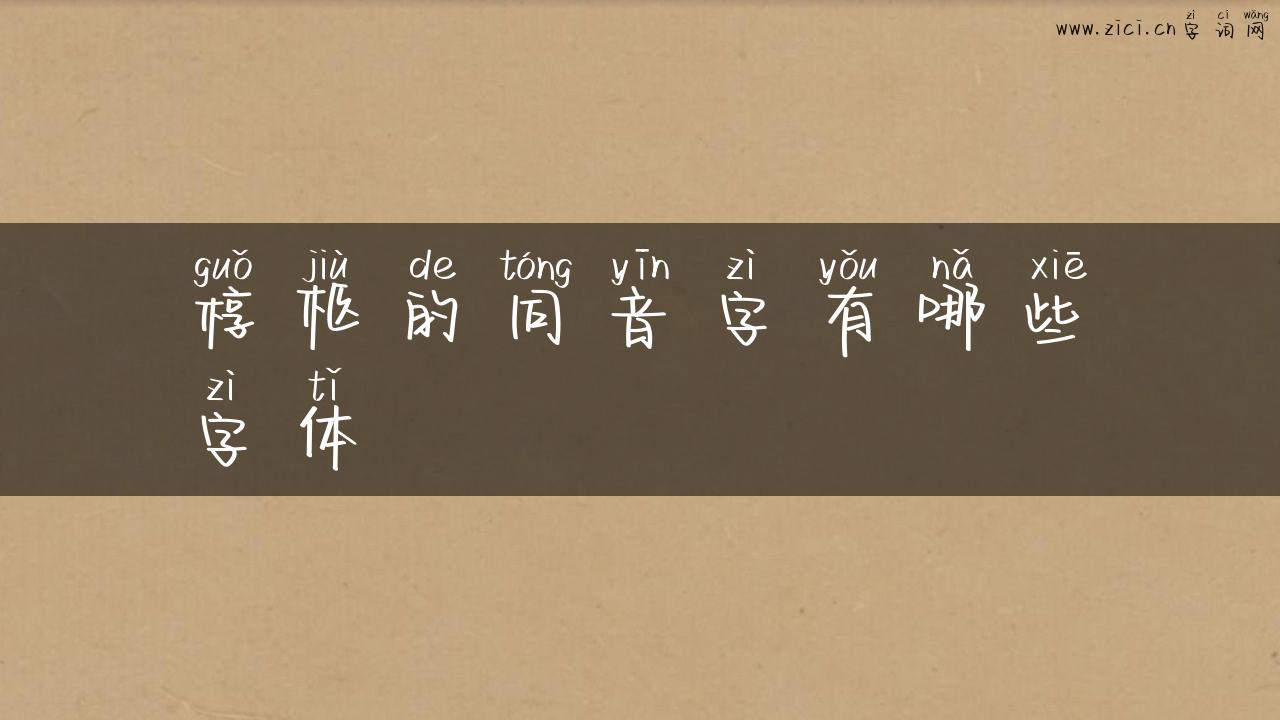 www.zici.cn zì cí wǎng
字词网
guǒ jiù de tóng yīn zì yǒu nǎ xiē
椁柩的同音字有哪些
zì tǐ
字体